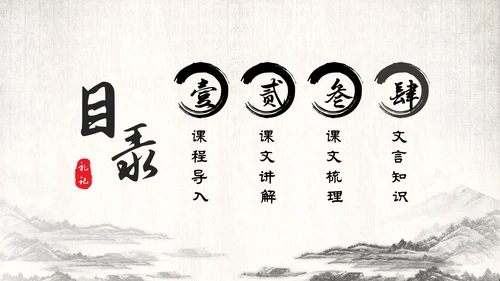 目录
礼记
壹
课程导入
贰
课文讲解
叁
课文梳理
肆
文言知识